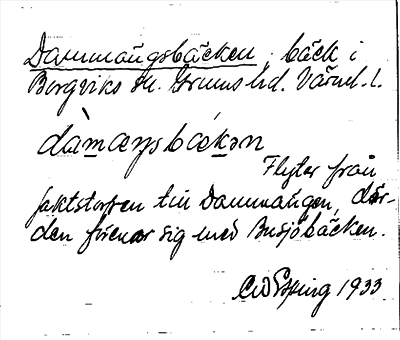 Dammängsbäcken, bäck i
Borgviks sn. Grums hd. Värml. l.
dàmæŋsbækən
Flyter från
jaktstorpen till Dammängen, där-
den förenar sig med Busjöbäcken.
1933